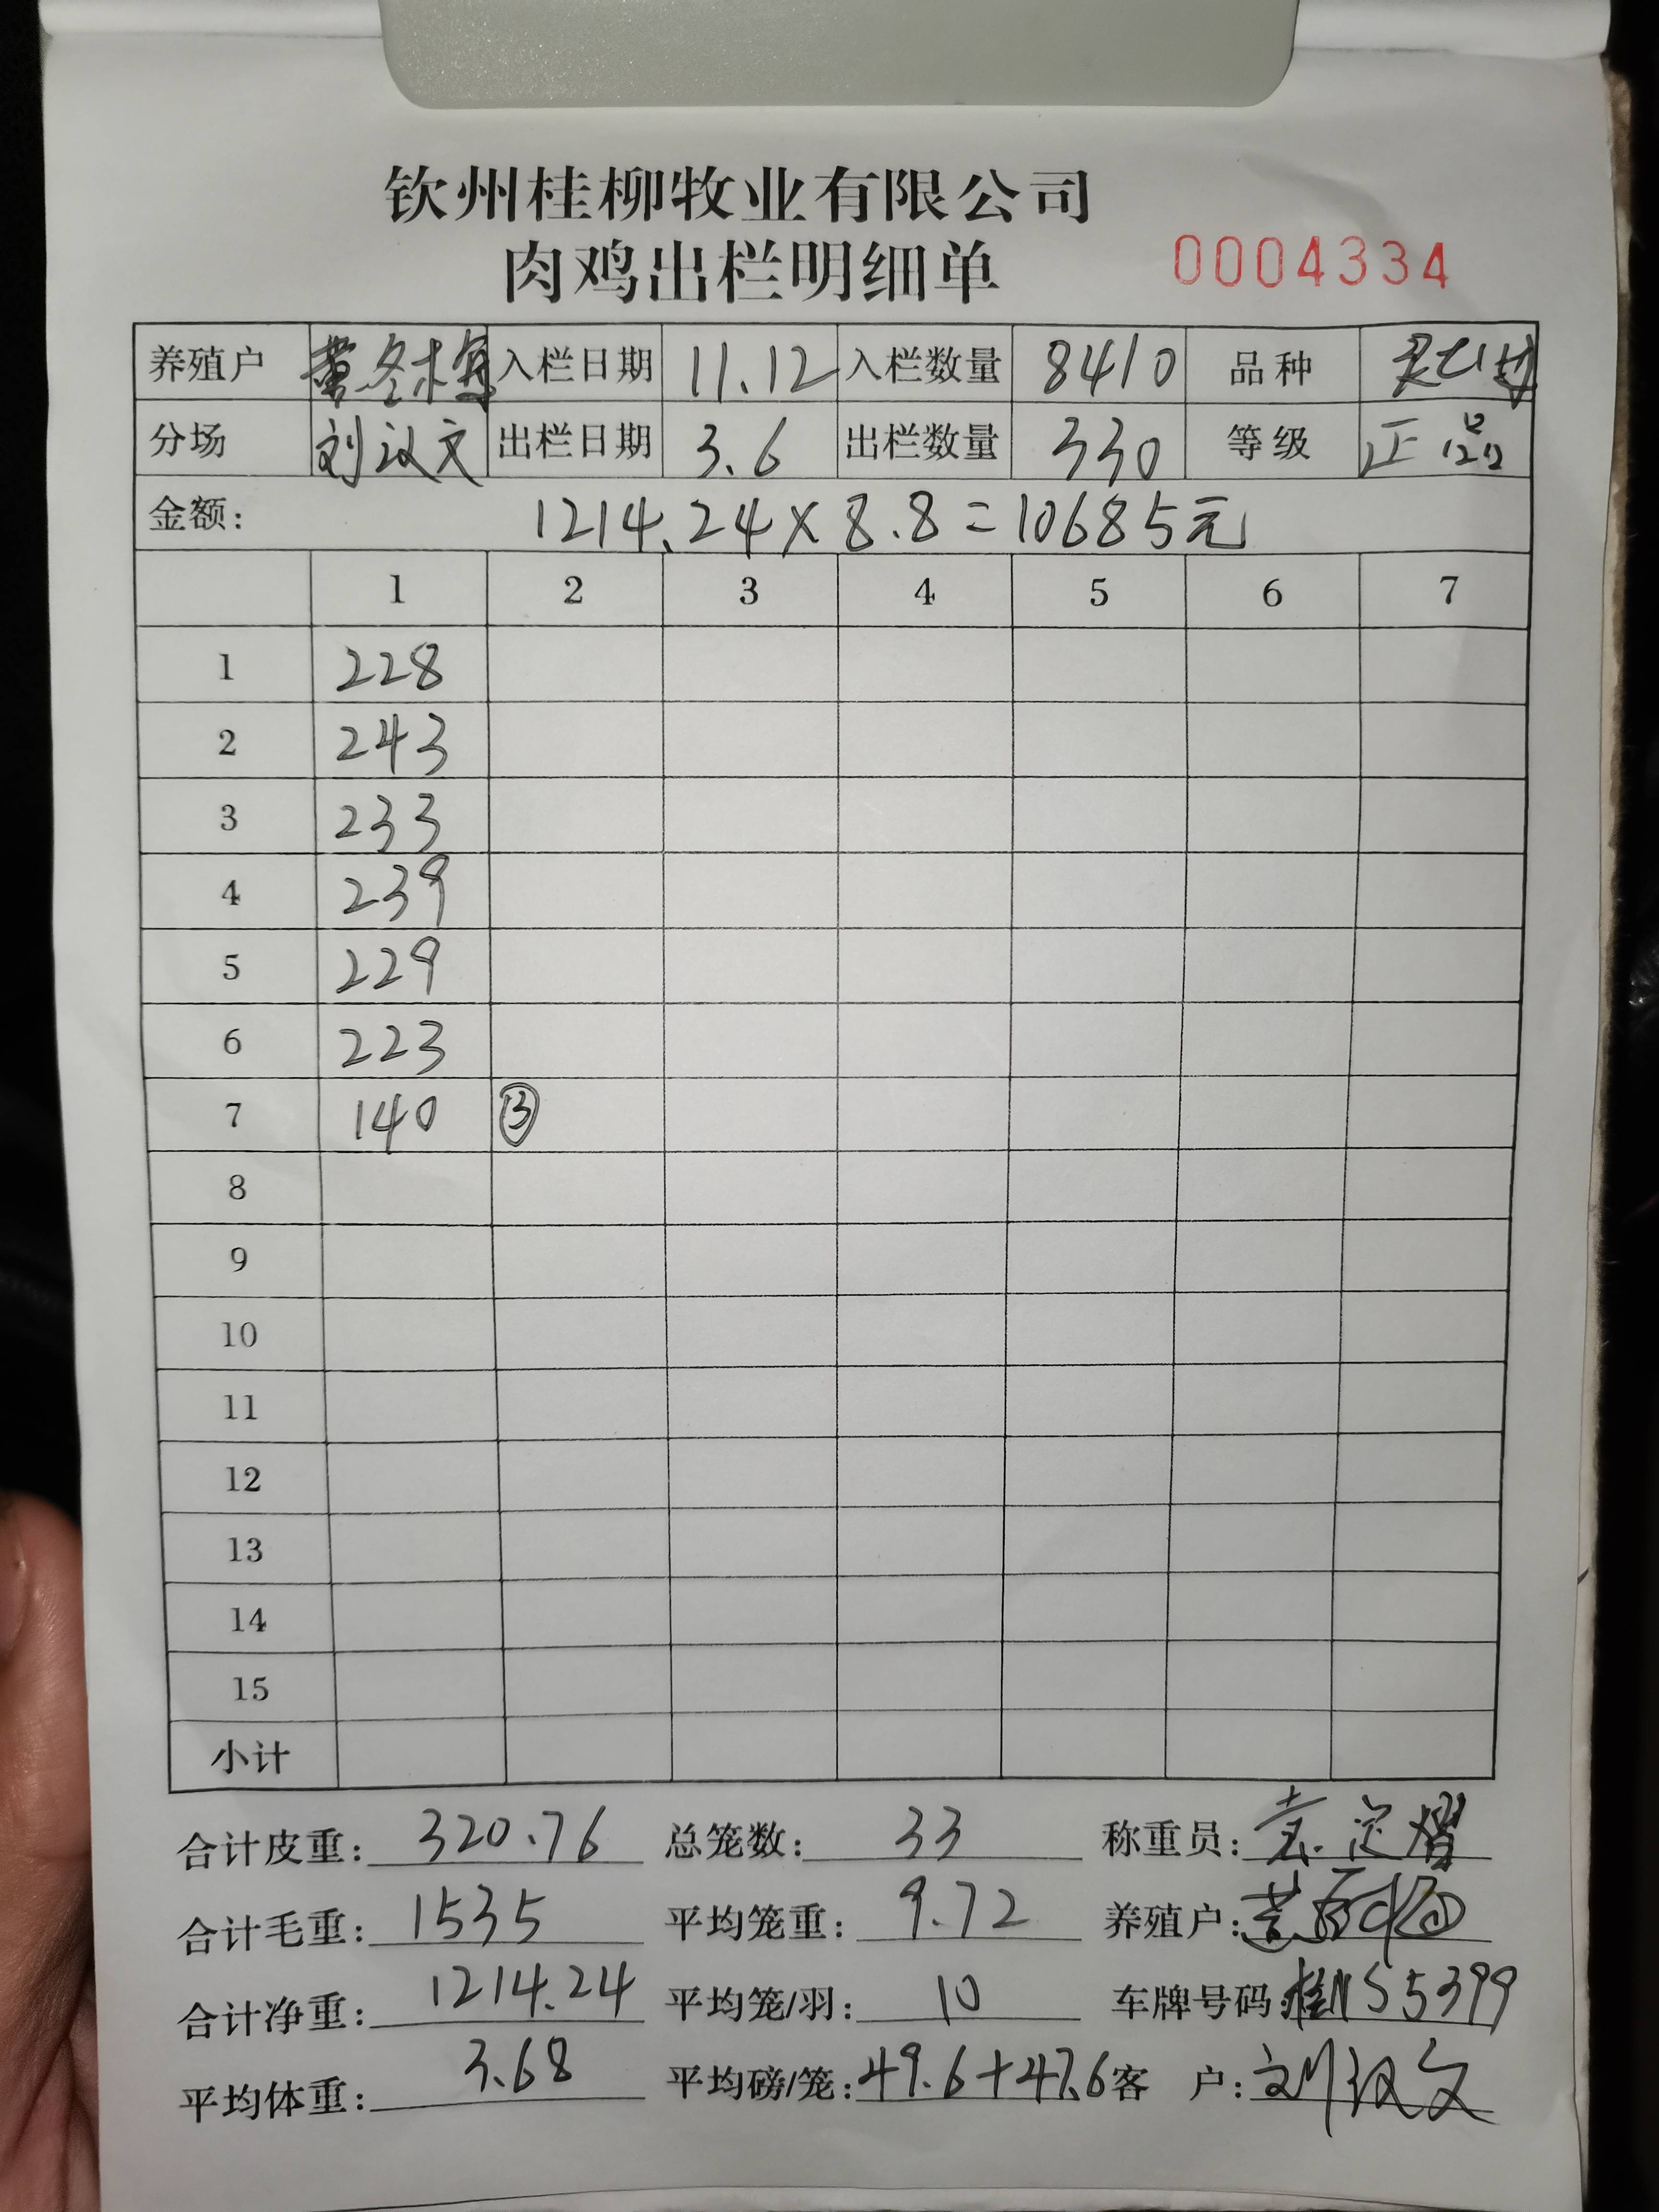 钦州桂柳牧业有限公司
肉鸡出栏明细单 0004334
养殖户 黄冬梅 入栏日期 11.12 入栏数量 8410 品种
分场 刘汉文 出栏日期 3.6 出栏数量 330 等级 正品
金额: 1214.24×8.8=10685元
1 2 3 4 5 6 7
1 228
2 243
3 233
4 239
5 229
6 223
7 140 ③
8
9
10
11
12
13
14
15
小计
合计皮重: 320.76 总笼数: 33 称重员:
合计毛重: 1535 平均笼重: 9.72 养殖户:
合计净重: 1214.24 平均笼/羽: 10 车牌号码: 桂NS5399
平均体重: 3.68 平均磅/笼: 49.6+47.6 客 户: 刘汉文